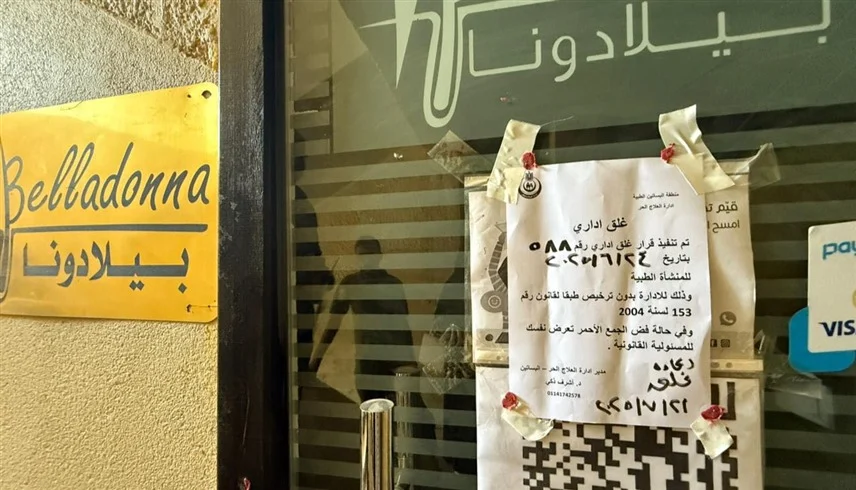 Belladonna
بيلادونا
بيلادونا
منطقة البساتين الطبية
ادارة العلاج الحر
غلق اداري
تم تنفيذ قرار غلق اداري رقم ٥٨٨
بتاريخ
للمنشأة الطبية
وذلك للادارة بدون ترخيص طبقا لقانون رقم
153 لسنة 2004
وفي حالة فض الجمع الأحمر تعرض نفسك
للمسئولية القانونية .
مدير ادارة العلاج الحر – البساتين
د. أشرف ذكي
01141742578
قيّم
امسح
VISA